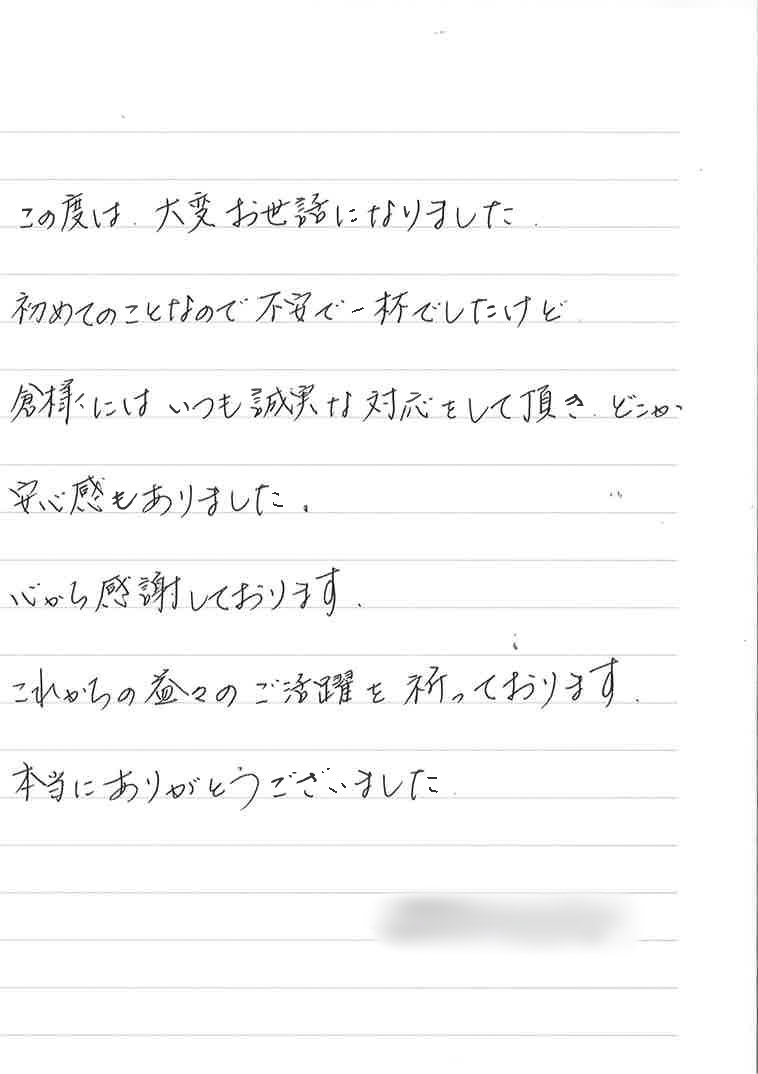 この度は、大変お世話になりました。
初めてのことなので不安で一杯でしたけど
倉様にはいつも誠実な対応をして頂き、どこか
安心感もありました。
心から感謝しております。
これからの益々のご活躍を祈っております。
本当にありがとうございました。